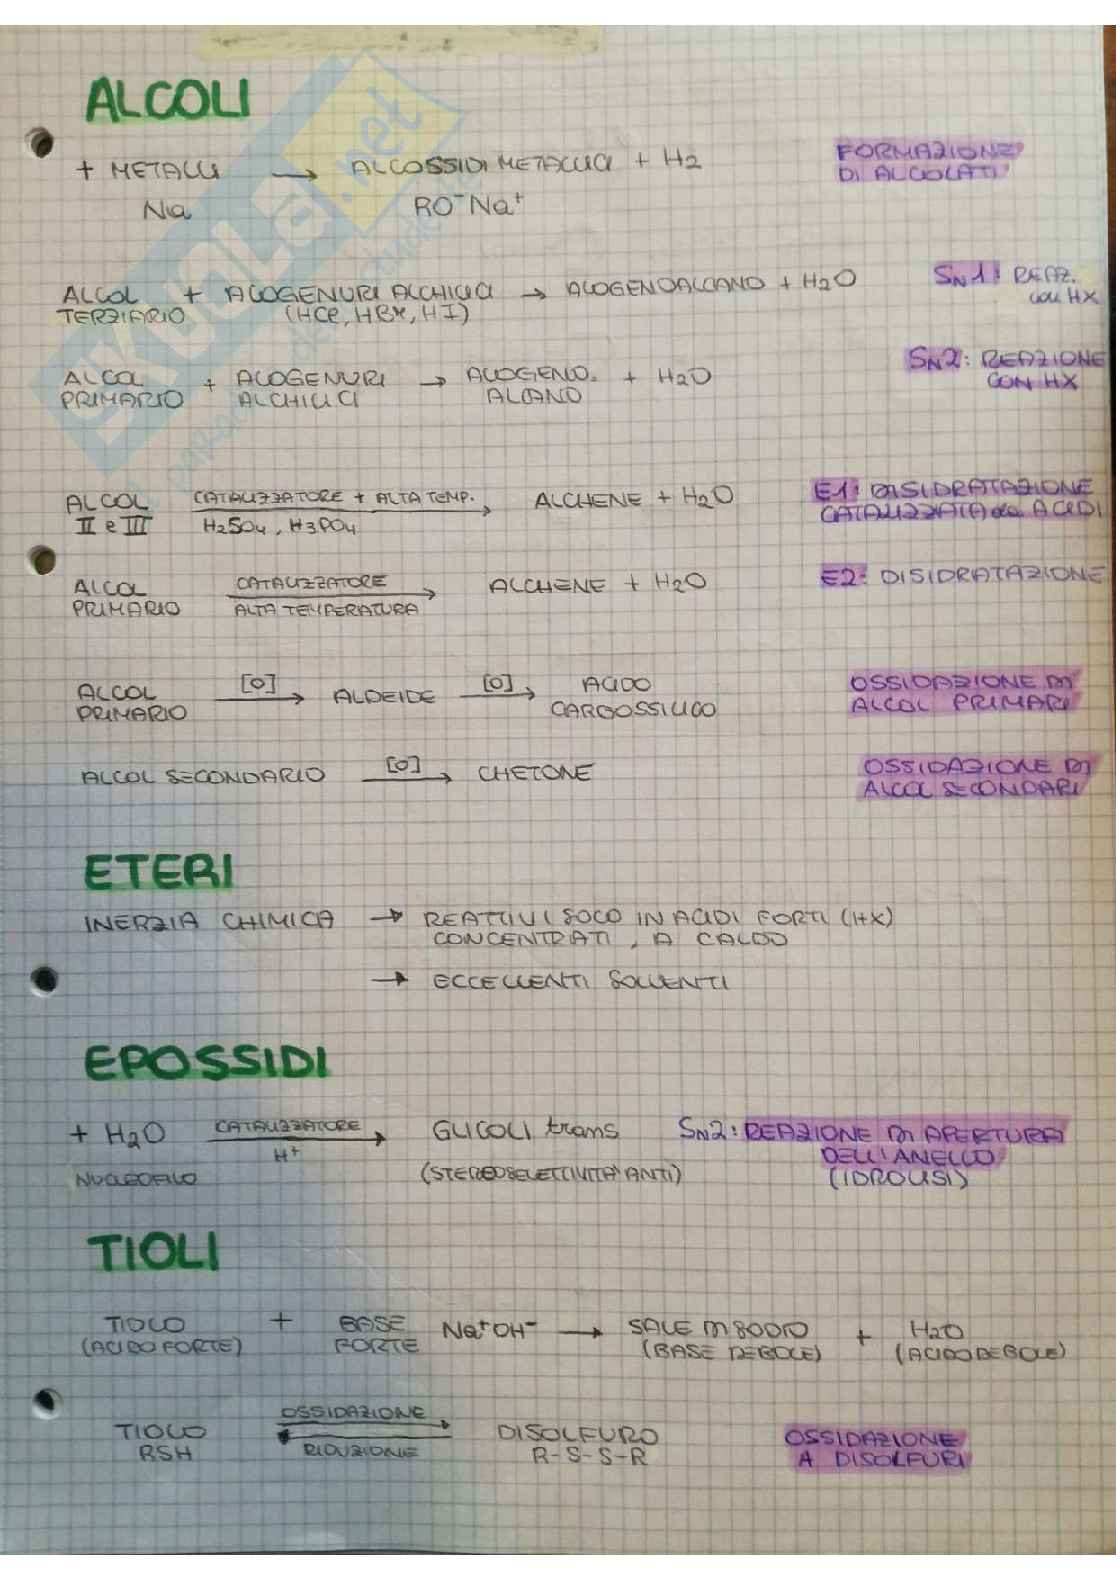 ALCOLI
+ METALLI → ALCOSSIDI METALLICI + H2
FORMAZIONE
DI ALCOLATI
Na RO⁻Na⁺
ALCOL + ALOGENURI ALCHILICI → ALOGENOALCANO + H2O
TERZIARIO (HCl, HBr, HI)
SN1: REAZ.
con HX
ALCOL + ALOGENURI → ALOGENO. + H2O
PRIMARIO ALCHILICI ALCANO
SN2: REAZIONE
CON HX
ALCOL CATALIZZATORE + ALTA TEMP. → ALCHENE + H2O
II e III H2SO4, H3PO4
E1: DISIDRATAZIONE
CATALIZZATA da ACIDI
ALCOL CATALIZZATORE → ALCHENE + H2O
PRIMARIO ALTA TEMPERATURA
E2: DISIDRATAZIONE
ALCOL [O] → ALDEIDE [O] → ACIDO
PRIMARIO CARBOSSILICO
OSSIDAZIONE DI
ALCOL PRIMARI
ALCOL SECONDARIO [O] → CHETONE
OSSIDAZIONE DI
ALCOL SECONDARI
ETERI
INERZIA CHIMICA → REATTIVI SOLO IN ACIDI FORTI (HX)
CONCENTRATI, A CALDO
→ ECCELLENTI SOLVENTI
EPOSSIDI
+ H2O CATALIZZATORE → GLICOLI trans
H⁺
NUCLEOFILO (STEREOSELETTIVITA' ANTI)
SN2: REAZIONE DI APERTURA
DELL'ANELLO
(IDROLISI)
TIOLI
TIOLO + BASE Na⁺OH⁻ → SALE DI SODIO + H2O
(ACIDO FORTE) FORTE (BASE DEBOLE) (ACIDO DEBOLE)
TIOLO OSSIDAZIONE DISOLFURO
RSH RIDUZIONE R-S-S-R
OSSIDAZIONE
A DISOLFURI
SKUOLA.net